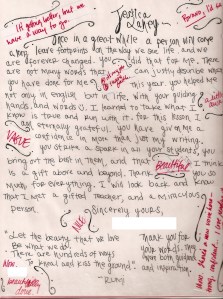 Jessica Lahey
Once in a great while a person will come
along, leave footprints on the way we see life and we
are forever changed. you did that for me. There are
not many words that can justly describe what
you have done for me this year. You helped me
not only in english but in life, with your guiding
hands, and words. I learned to take what I
know is true and run with it for this lesson I
am eternally grateful. You have given me a
confidence in more than just my writing.
you state a spark in your students, you
bring out the best in them, and that I think
is a gift above and beyond. Thank you so
much for everything, I will look back and know
that I met a gifted teacher, and a miraculous
person.
Sincerely yours,
"Let the beauty that we love
be what we do.
There are hundreds of ways
To kneel and kiss the ground."
-Rumi
Thank you for
your words, my
mom both guidance
and inspiration.
VAGUE
Beautiful
NICE
Nice.
beautifully
done.